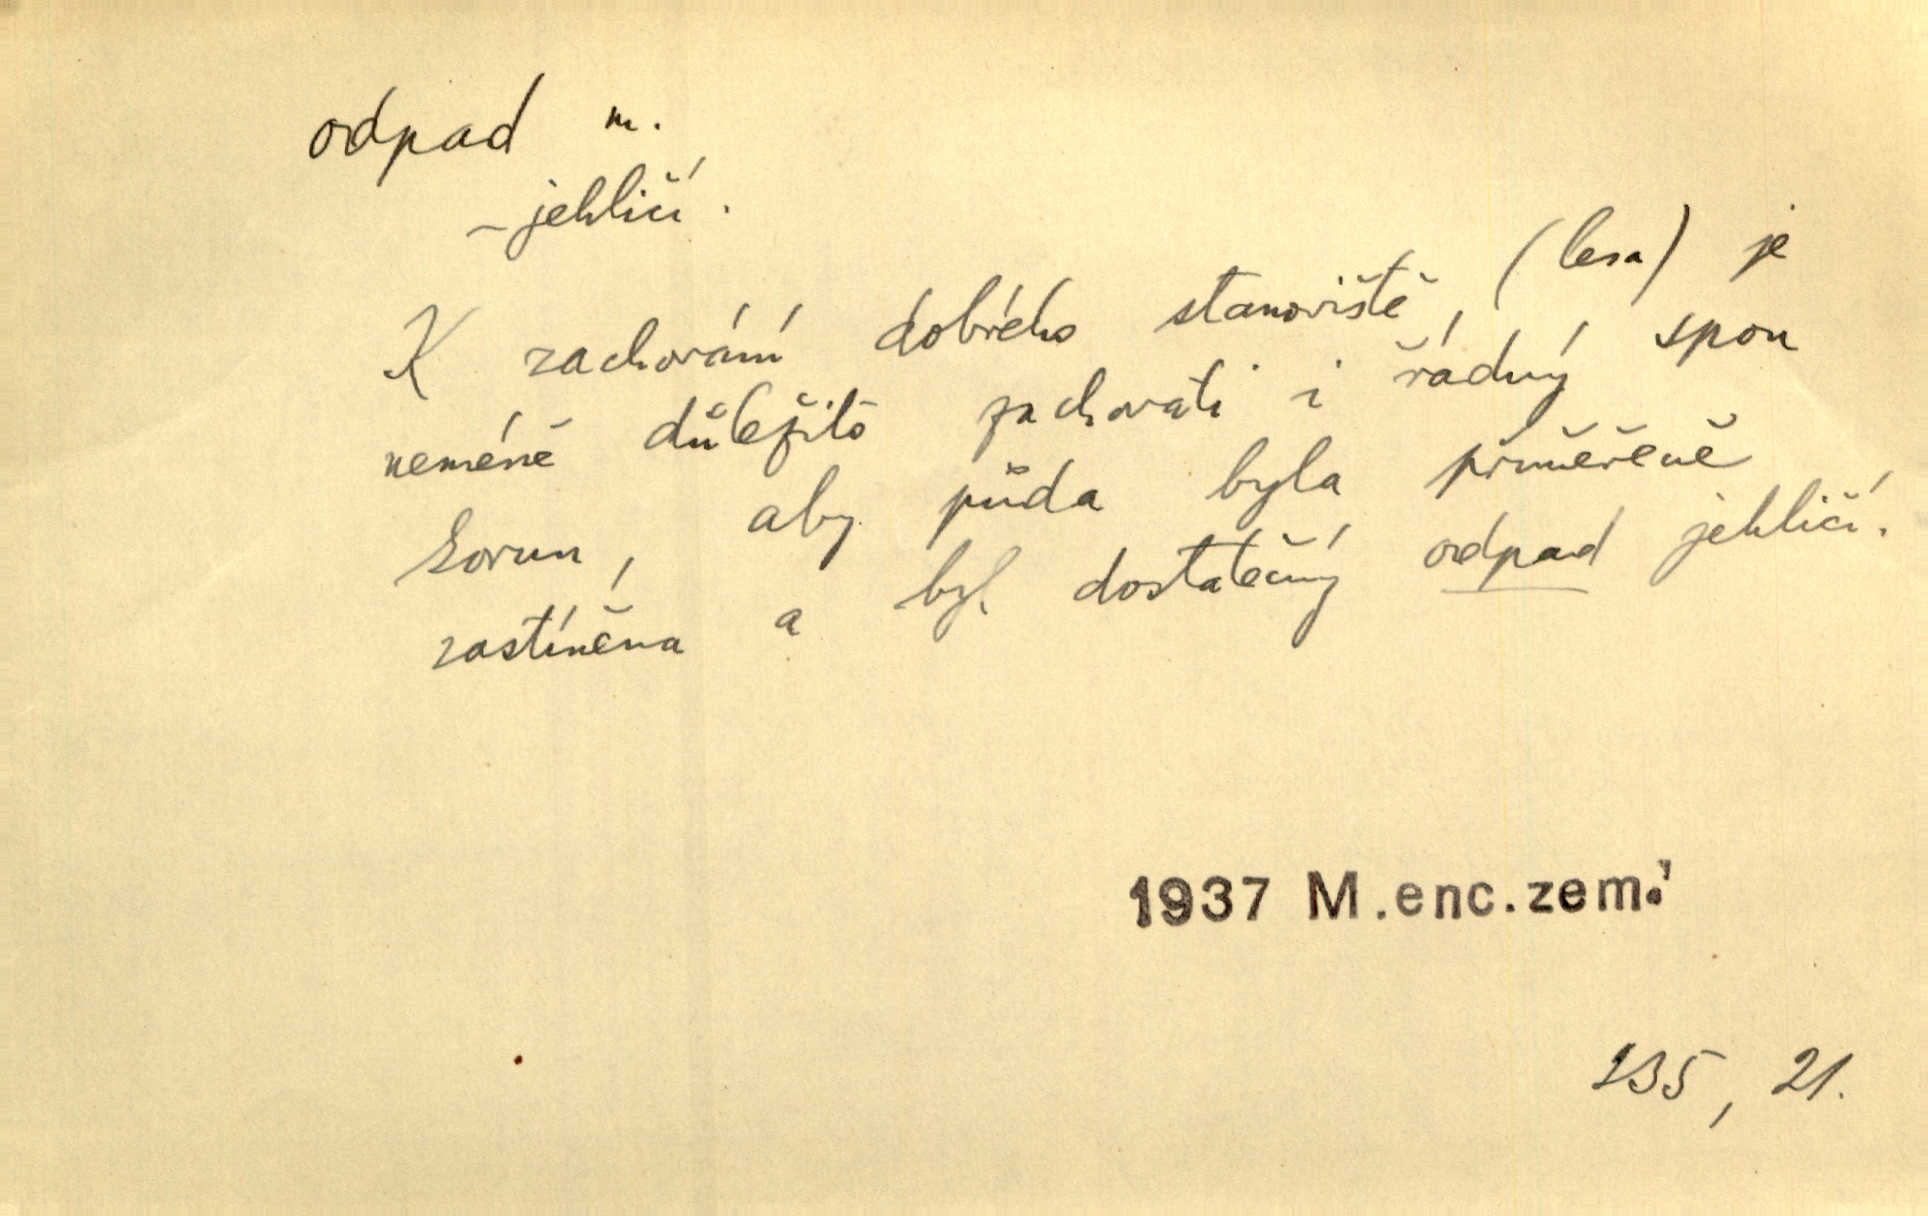 odpad m.
~ jehličí.
K zachování dobrého stanoviště, (lesa) je
neméně důležito zachovati i řádný spon
korun, aby půda byla přiměřeně
zastíněna a byl dostatečný odpad jehličí.
1937 M.enc.zem.
235, 21.